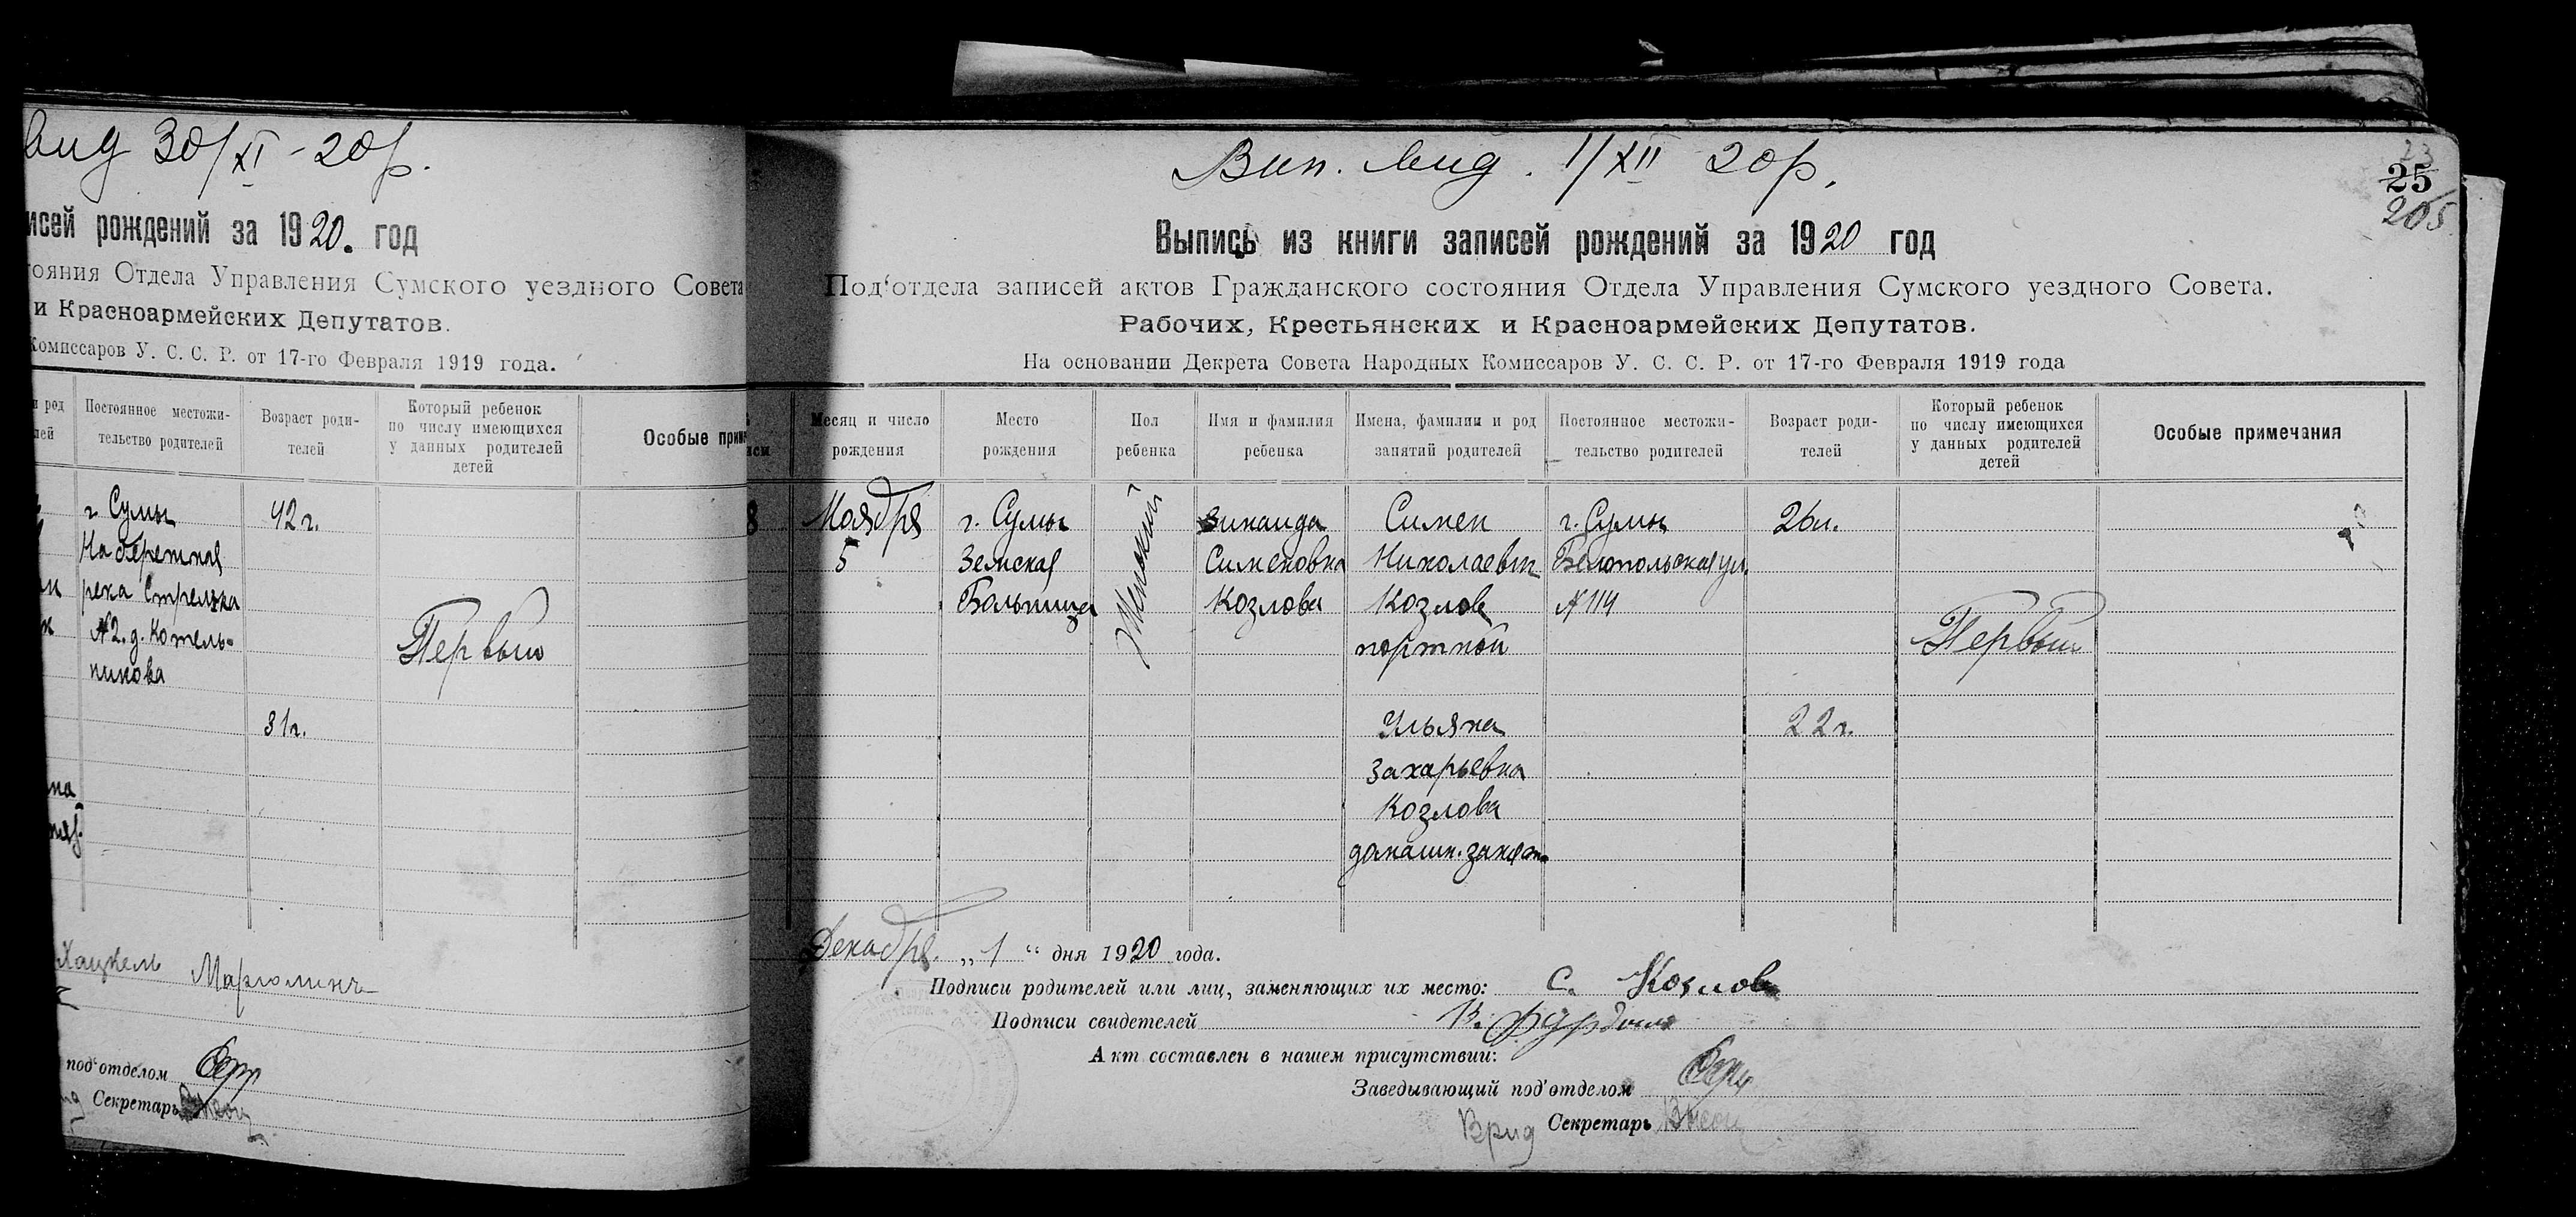 вид 30/XI - 20р.
исей рождений за 1920. год
тояния Отдела Управления Сумского уездного Совета
и Красноармейских Депутатов.
Комиссаров У. С. С. Р. от 17-го Февраля 1919 года.
и род
лей
Постоянное местожи-
тельство родителей
Возраст роди-
телей
Который ребенок
по числу имеющихся
у данных родителей
детей
Особые прим
г. Сумы
42 г.
Набережная
река Стрелка
№ 2. д. Котель-
никова
Первый
31г.
на
Хацкель Марголинъ
под'отделом
Секретарь
Вип. вид. 1/XII 20р.
23
25
205
Выпись из книги записей рождений за 1920 год
Под'отдела записей актов Гражданского состояния Отдела Управления Сумского уездного Совета.
Рабочих, Крестьянских и Красноармейских Депутатов.
На основании Декрета Совета Народных Комиссаров У. С. С. Р. от 17-го Февраля 1919 года
Месяц и число
рождения
Место
рождения
Пол
ребенка
Имя и фамилия
ребенка
Имена, фамилии и род
занятий родителей
Постоянное местожи-
тельство родителей
Возраст роди-
телей
Который ребенок
по числу имеющихся
у данных родителей
детей
Особые примечания
8
Ноября
5
г. Сумы
Земская
Больница
Женский
Зинаида
Сименовна
Козлова
Симен
Николаевич
Козлов
портной
г. Сумы
Белопольская ул.
№ 114
26л.
Первый
Ульяна
Захарьевна
Козлова
домашн. занят.
22г.
Декабря „ 1 “ дня 1920 года.
Подписи родителей или лиц, заменяющих их место: С. Козлов
Подписи свидетелей
Акт составлен в нашем присутствии:
Заведывающий под'отделом
Врид Секретарь